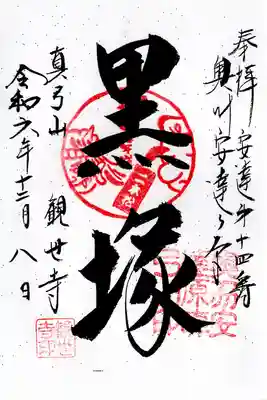 奉拝 安達第十四番
奥州安達ヶ原
黒塚
真弓山 観世寺
令和六年十二月八日